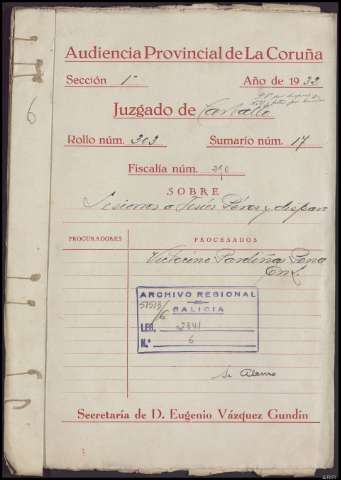 Audiencia Provincial de La Coruña
Sección 1ª Año de 1932
Juzgado de Carballo
6
Rollo núm. 303 Sumario núm. 17
Fiscalía núm.
SOBRE
Lesiones a Jesús Pérez y disparo
PROCURADORES PROCESADOS
Victorino Pardiñas Pena
ARCHIVO REGIONAL
DE
GALICIA
LEG. 2341
N.º 6
Secretaría de D. Eugenio Vázquez Gundin